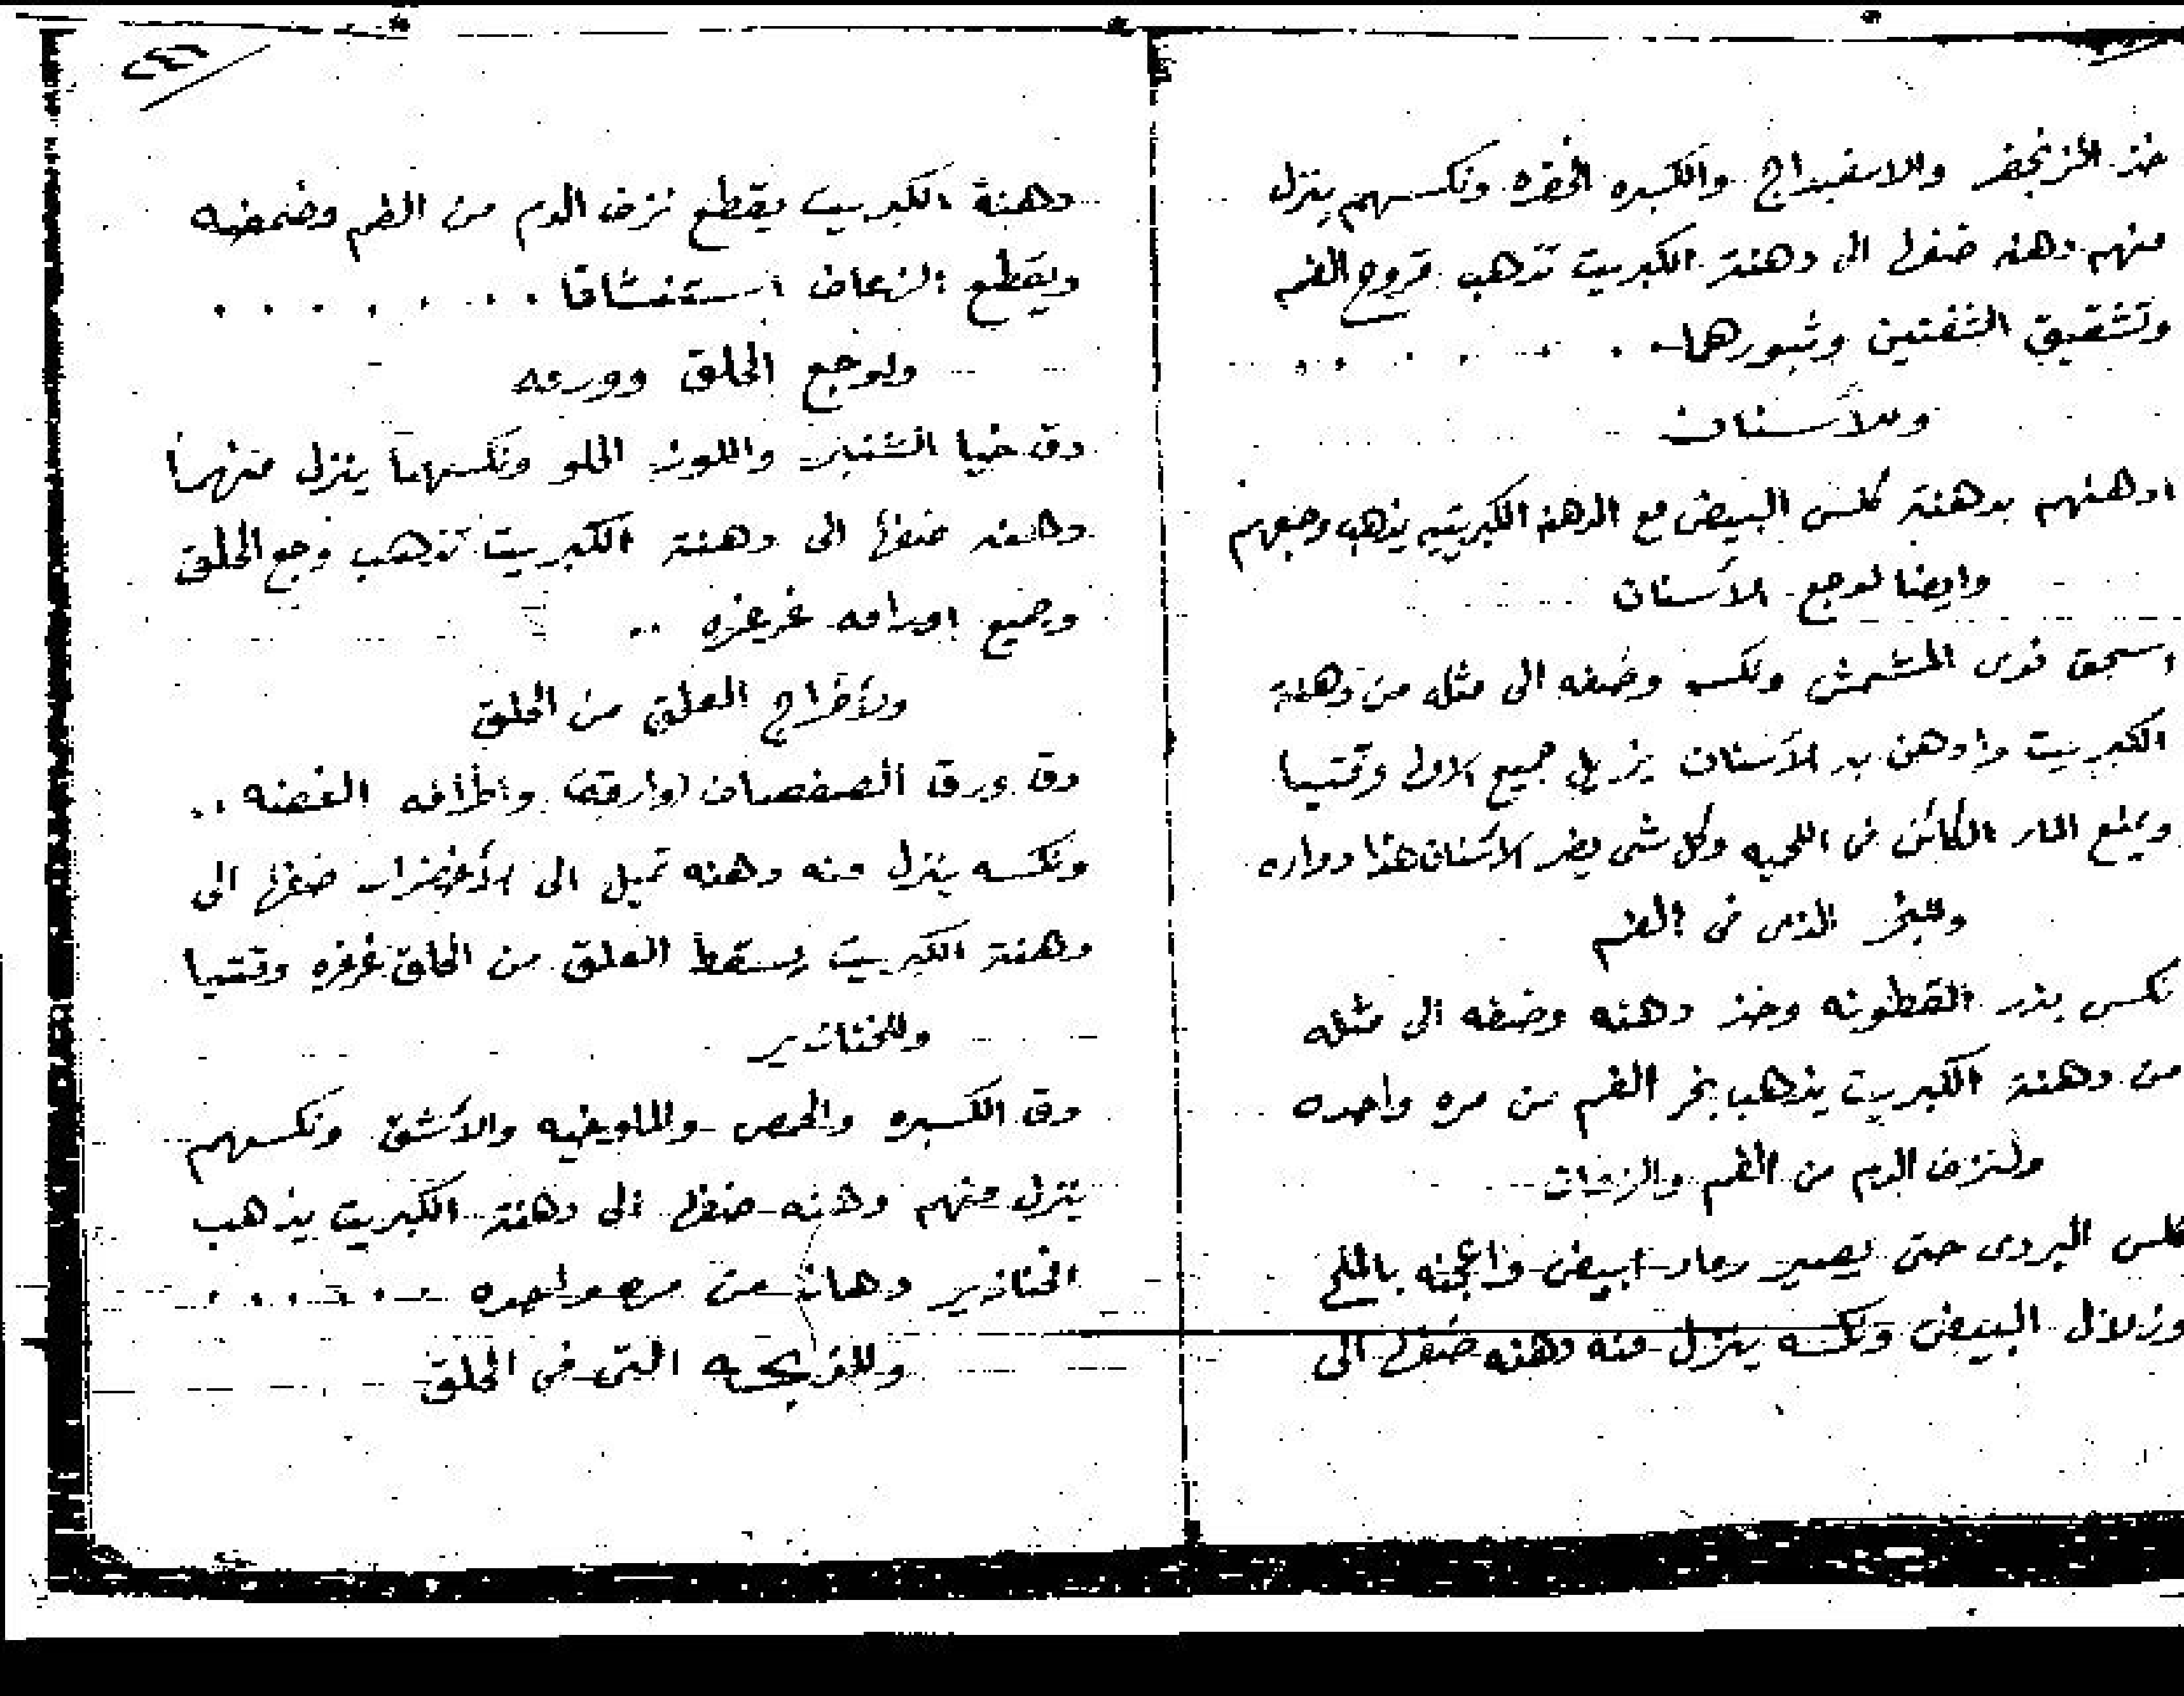 خذ الزنجفر والاسفيداج والكسبره الخضره ونكسهم ينزل
منهم دهنه ضفها الى دهنة الكبريت تذهب قروح الفم
وتشقيق الشفتين وثبورهما
وللأسنان
ادهنهم بدهنة كلس البيض مع الدهنه الكبريتيه يذهب وجعهم
وايضا لوجع الأسنان
اسحق نوى المشمش ونكسه وضفه الى مثله من دهنة
الكبريت وادهن به الأسنان يزيل جميع وقتيا
ويمنع الكائن فى اللحيه وكل شى يضر الاسنان هذا دواره
وللبخر الذى فى الفم
نكس بذر القطونه وخذ دهنه وضفه الى مثله
من دهنة الكبريت يذهب بخر الفم من مره واحده
ولنزف الدم من الفم
كلس البردى حتى يصير رماد ابيض واعجنه بالملح
وزلال البيض ونكسه ينزل منه دهنه ضفها الى
دهنة الكبريت يقطع نزف الدم من الفم وضمضه
ويقطع الرعاف استنشاقا
ولوجع الحلق وورمه
دق خيا الشنبر واللوز الحلو ونكسهما ينزل منهما
دهنه ضفها الى دهنة الكبريت تذهب وجع الحلق
وجميع اورامه غرغره
ولأخراج العلق من الحلق
دق ورق الصفصاف (اوارقه) واطرافه الغضه
ونكسه ينزل منه دهنه تميل الى الأخضرار ضفها الى
دهنة الكبريت يسقط العلق من الحلق غرغره وقتيا
وللخنازير
دق الكسبره والحمص والأشق ونكسهم
ينزل منهم دهنه ضفها الى دهنة الكبريت يذهب
الخنازير دهان من مره واحده
التى فى الحلق